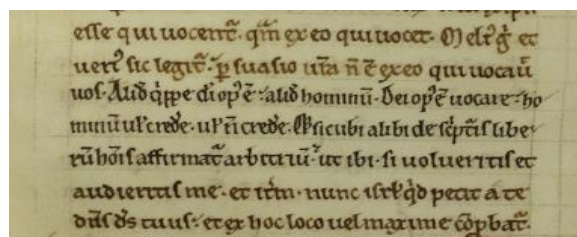 esse qui uocent᷑. qm̅ ex eo qui uocet. Meli᷒ g̊ et
ueri᷒ sic legit᷑. p̱suasio ur̅a n̅ e̅ ex eo qui uocau̅
uos. Aliud q̇ppe di op᷒ e̅. aliud hominu̅. Dei op᷒ e̅ uocare. ho
minu̅ ul̕ crede᷑. ul̕ n̅ crede᷑. Et sicubi alibi de sc̅pturis libe
ru̅ ho̅is affirmat᷑ arbitriu̅. ut ibi. si uolueritis et
audieritis me. et it̅m. nunc isrl̕ qd̕ petit a te
dn̅s ds̅ tuus. et ex hoc loco uel maxime co̅p̱bat᷑.